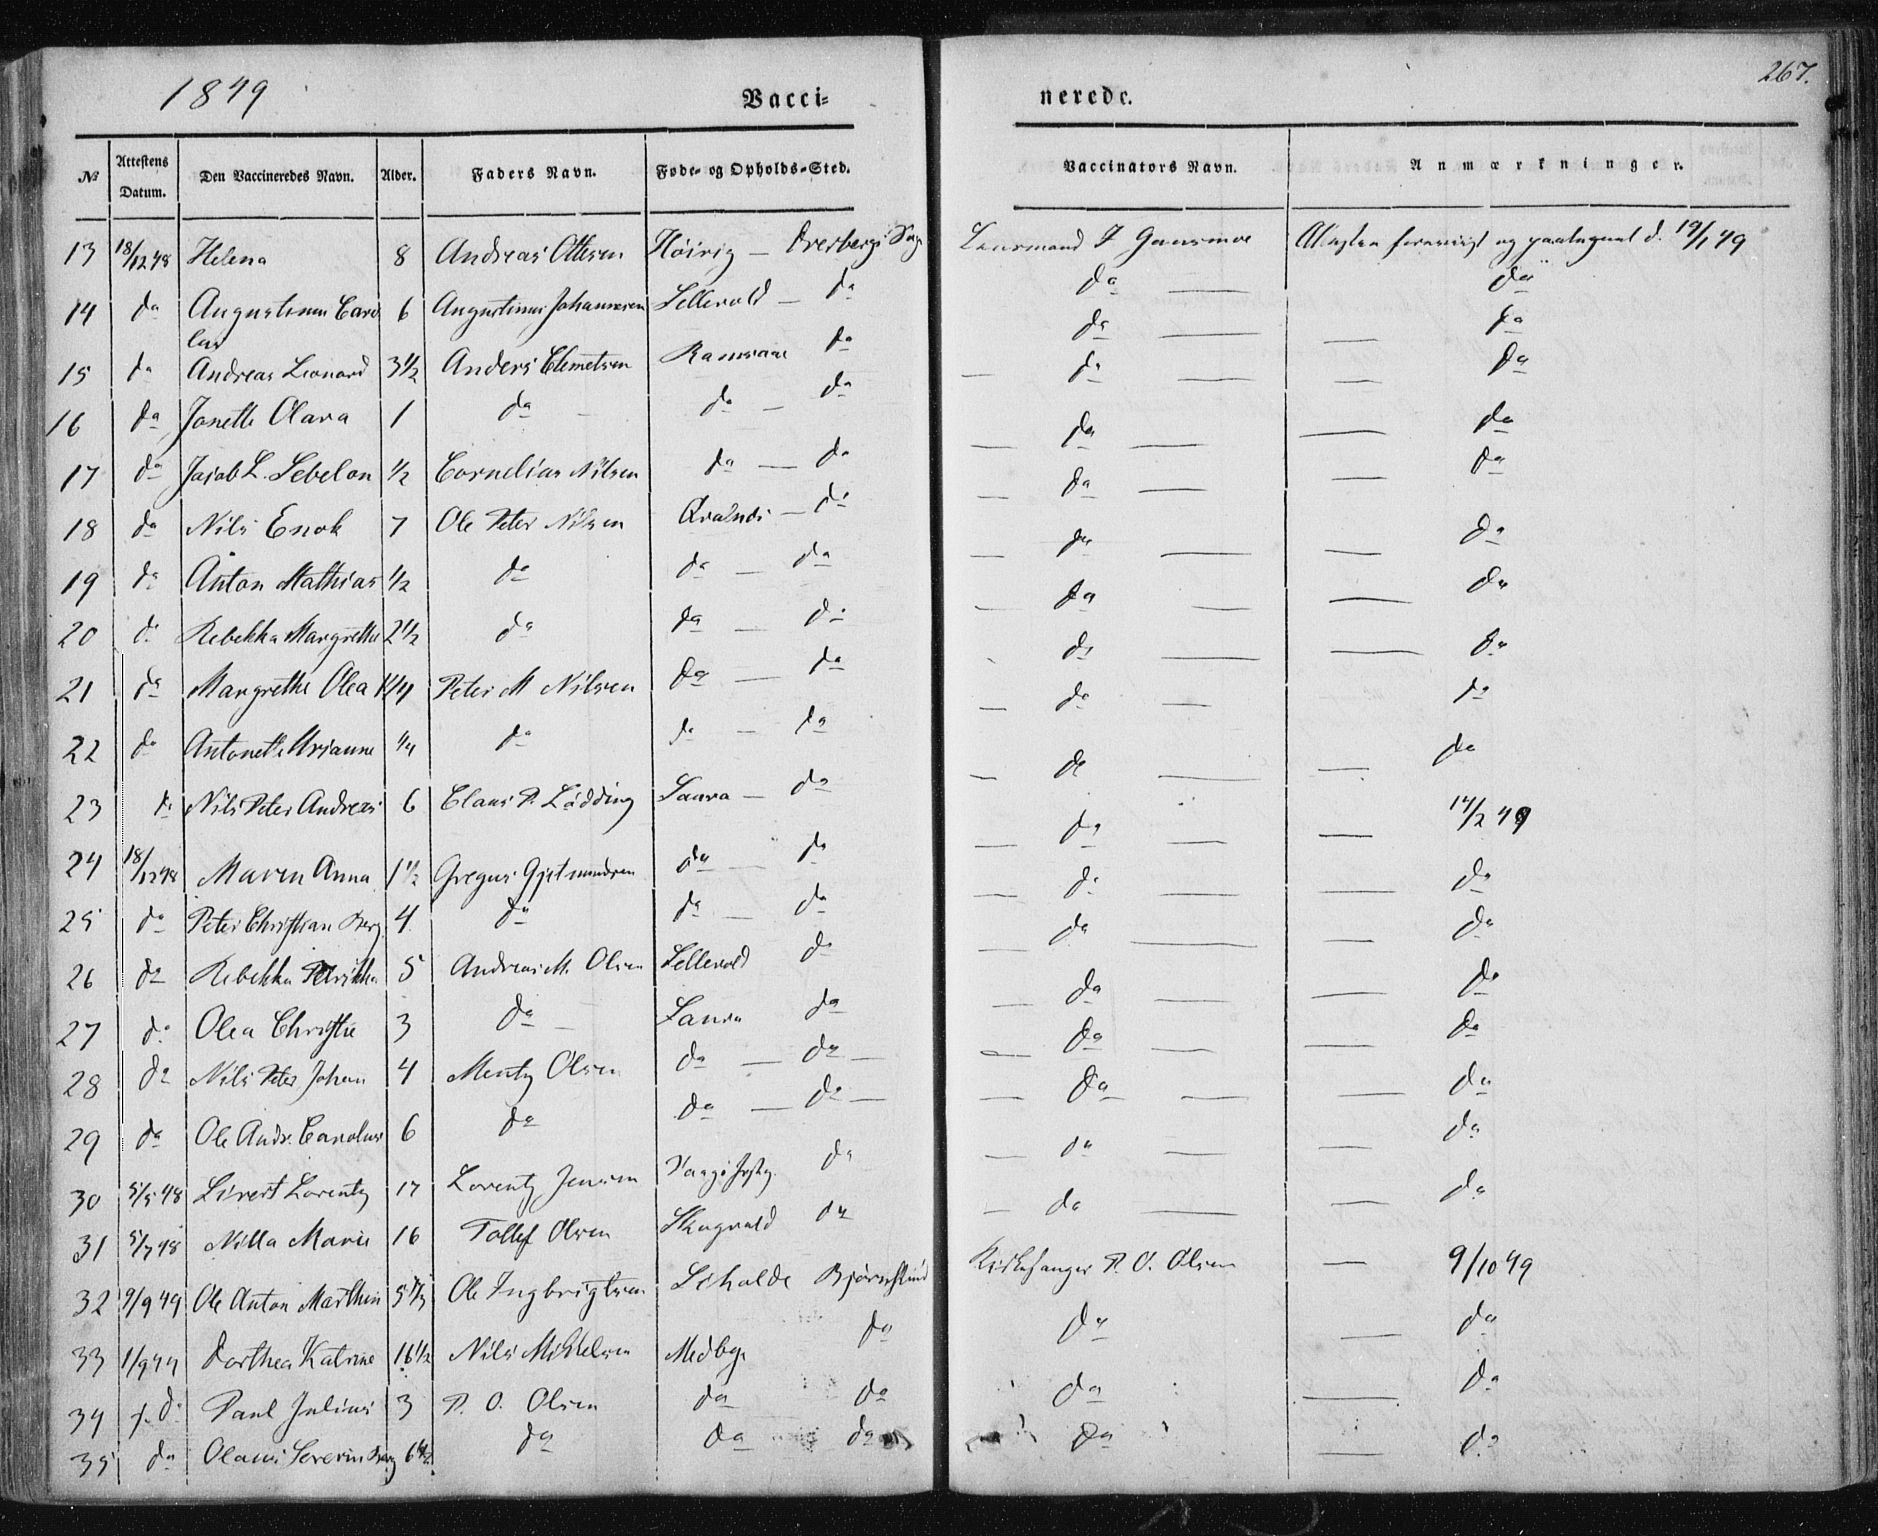 1849
Vacci=
nerede.
267.
№ Attestens Datum. Den Vaccineredes Navn. Alder. Faders Navn. Føde- og Opholds-Sted. Vaccinators Navn. Anmærkninger.
13 18/12 48 Helena 8 Andreas Ottesen Høivig — Overbergs Sogn Lensmand P Gaasmoe d. 19/1 49
14 do Augustinus Caro 6 Augustinus Johannesen Lellevold — do do do
lus do do
15 do Andreas Leonard 3 1/2 Anders Clemetsen Ramsaae do do do
16 do Jonette Olava 1 do do — do do do
17 do Jacob L. Sebelon 1/2 Cornelius Nilsen do — do do do
18 do Nils Enok 7 Ole Peter Nilsen — do do do
19 do Anton Mathias 1/2 do do — do do do
20 do Rebekka Margrethe 2 1/2 do do — do do do
21 do Margrethe Olea 1 1/4 Peter M Nilsen do — do do do
22 do Antonette Urianne 1/4 do do — do do do
23 do Nils Peter Andreas 6 Claus P. Lødding Saura — do do 14/2 49
24 18/12 48 Maren Anna 1 1/2 Gregus Gjetmundsen do — do do do
25 do Peter Christian Berg 4 do do — do do do
26 do Rebekka Petrikka 5 Andreas M. Olsen Lellevold do do do
27 do Olea Christie 3 do Saura do do do
28 do Nils Peter Johan 4 Mentz Olsen do — do — do do
29 do Ole Andr. Carolus 6 do do — do — do do
30 5/5 48 Sivert Lorentz 17 Lorentz Jensen do do do
31 5/7 48 Nilla Marie 16 Tollef Olsen Skugvald do Kirkesanger P. O. Olsen — 9/10 49
32 9/9 49 Ole Anton Marthin 5 1/3 Ole Ingbrigtsen do do
33 1/9 49 Dorthea Katrine 16 1/2 Nils Mikkelsen Medbye do do do
34 do Paul Julius 3 P. O. Olsen do do do do
35 do Olaus Severin Berg 6 1/2 do do do